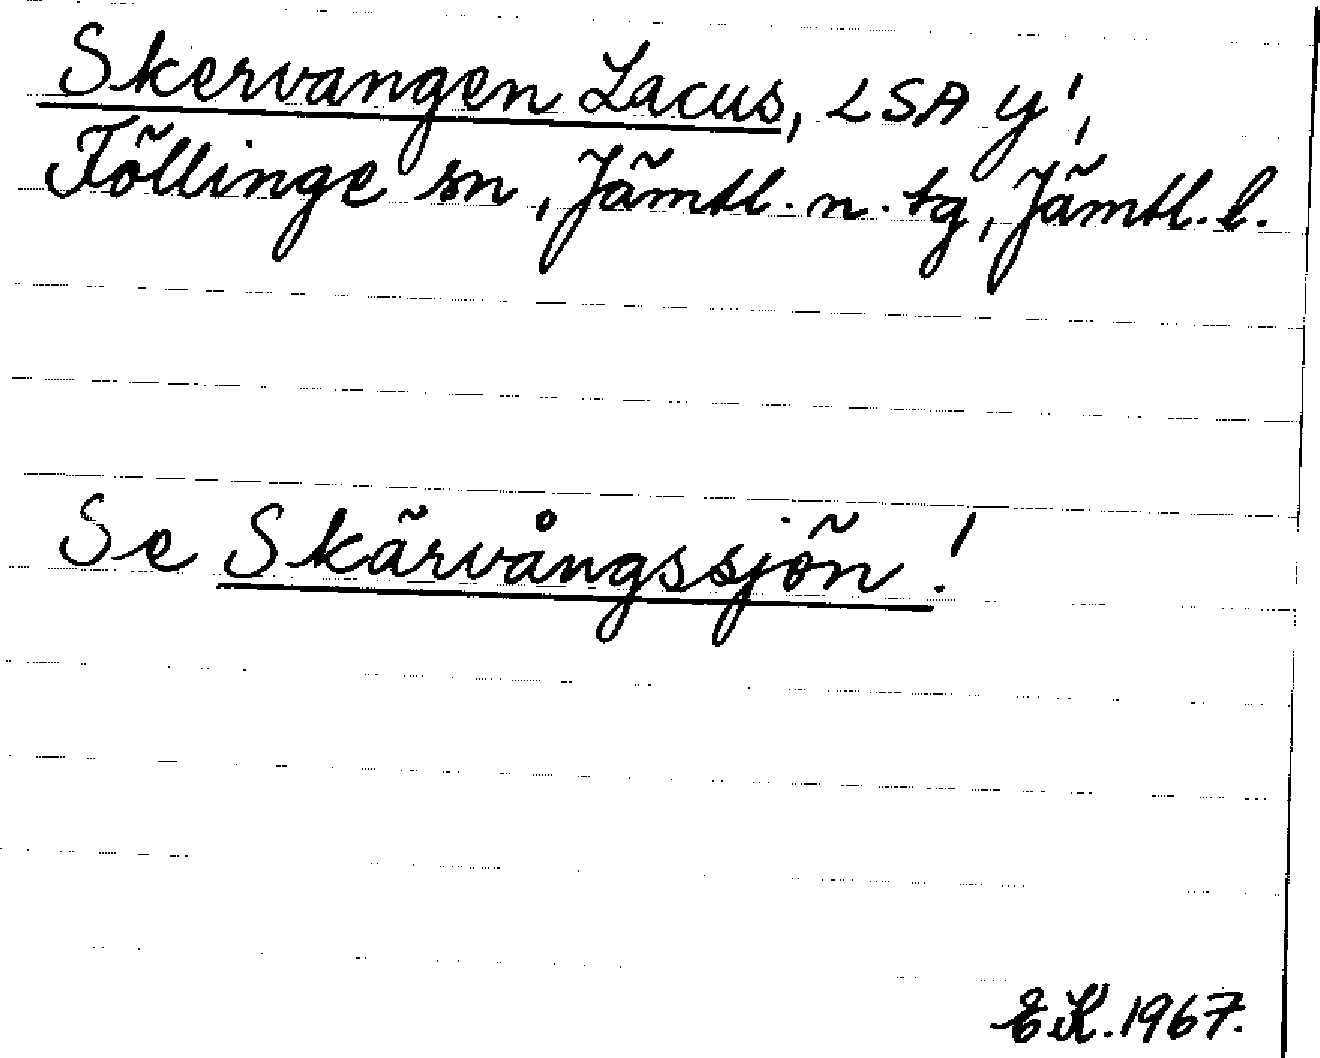 Skervangen Lacus, LSA y',
Föllinge sn, Jämtl. n. tg, Jämtl. l.
Se Skärvångssjön!
E.K. 1967.